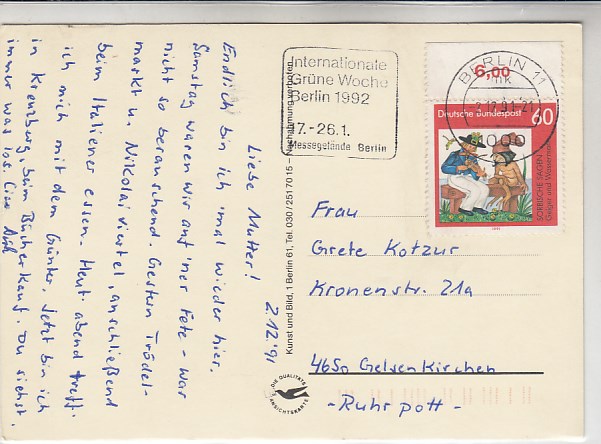 2.12.91
Liebe Mutter!
Endlich bin ich 'mal wieder hier.
Samstag waren wir auf 'ner Fete - war
nicht so berauschend. Gestern Trödel-
markt u. Nikolaiviertel, anschließend
beim Italiener essen. Heut' abend treff'
ich mich mit dem Günter. Jetzt bin ich
in Kreuzberg, beim Bücherkauf. Du siehst,
immer was los.
Kunst und Bild, 1 Berlin 61, Tel. 030/2517015 - Nachahmung verboten
DIE QUALITÄTS
ANSICHTSKARTE
Internationale
Grüne Woche
Berlin 1992
17.-26.1.
Messegelände Berlin
6,00
BERLIN 11
mk
-2.12.91-21
1000
Deutsche Bundespost
60
SORBISCHE SAGEN
Geiger und Wassermann
1991
Frau
Grete Kotzur
Kronenstr. 21a
4650 Gelsenkirchen
-Ruhrpott-